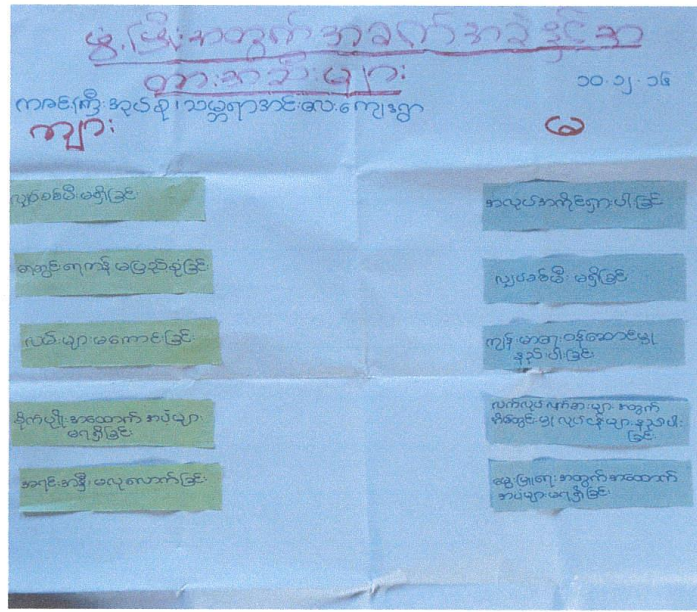 ဖွံ့ဖြိုးအတွက်အခက်အခဲနှင့်အ
တားအဆီးများ
၁၀.၁၂.၁၆
ကခင်ကြီးအုပ်စု၊သမ္ဘရာအင်းလေးကျေးရွာ
ကျား
မ
လျှပ်စစ်မီးမရှိခြင်း
ရေတွင်းရေကန်မပြည့်စုံခြင်း
လမ်းများမကောင်းခြင်း
စိုက်ပျိုးအထောက်အပံ့များ
မရရှိခြင်း
အရင်းအနှီးမလုလောက်ခြင်း
အလုပ်အကိုင်ရှားပါးခြင်း
လျှပ်စစ်မီး မရှိခြင်း
ကျန်းမာရေးဝန်ဆောင်မှု
နည်းပါးခြင်း
လက်လုပ်လက်စားများအတွက်
လုပ်ငန်းများနည်းပါး
ခြင်း
မွေးမြူရေးအတွက်အထောက်
အပံ့များမရရှိခြင်း